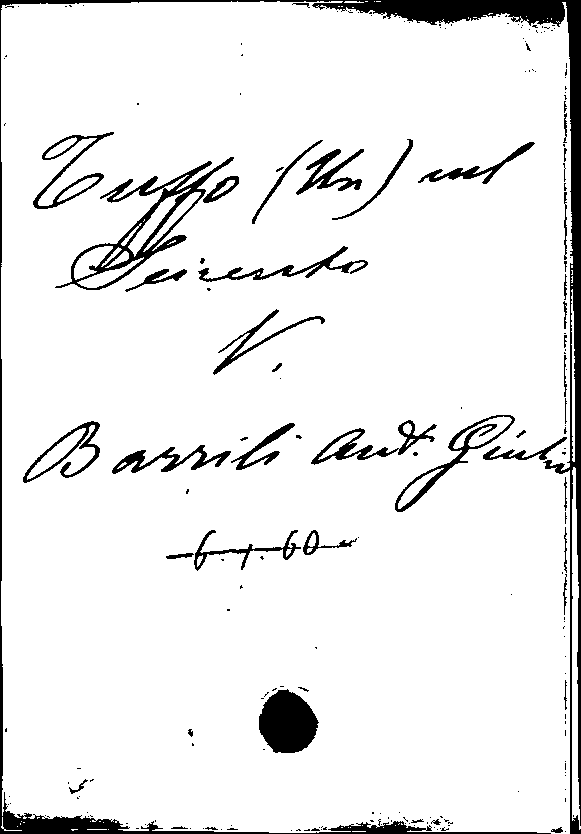 Tuffo (Un) nel
Seicento
V.
Barrili Ant. Giulio
6.1.60